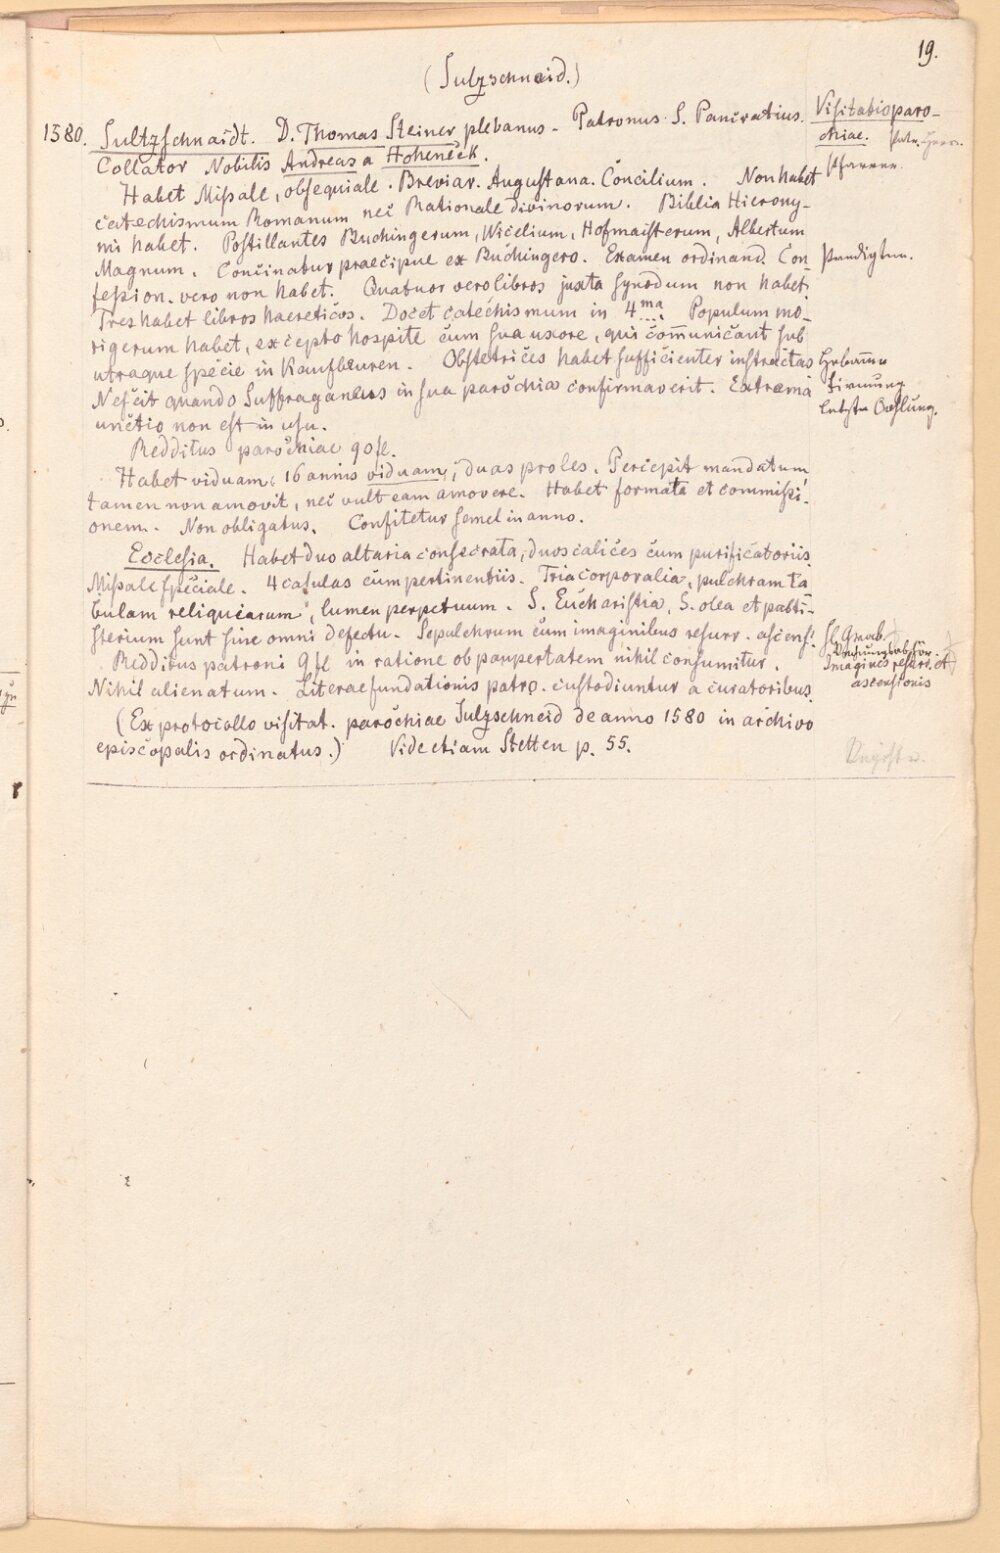 19.
(Sulzschneid.)
1580. Sultzschnaidt. D. Thomas Steiner plebanus. Patronus S. Pancratius. Visitatio paro-
chiae.
Collator Nobilis Andreas a Hoheneck. Pfarrer.
Habet Missale, obsequiale. Breviar. Augustana. Concilium. Non habet
catechismum Romanum nec Rationale divinorum. Biblia Hierony-
mi habet. Postillantes Buchingerum, Wicelium, Hofmaisterum, Albertum
Magnum. Concinatur praecipue ex Buchingero. Examen ordinand. Con Predigten.
fession. vero non habet. Quatuor vero libros juxta synodum non habet.
Tres habet libros haereticos. Docet catechismum in 4ma. Populum mo-
rigerum habet, excepto hospite cum sua uxore, qui com̄unicant sub
utraque specie in Kaufbeuren. Obstetrices habet sufficienter instructas Hebam̄en
Nescit quando Suffraganeus in sua parochia confirmaverit. Extrema Firmung
unctio non est in usu. letzte Oehlung.
Redditus parochiae 90 fl.
Habet viduam, 16 annis viduam, duas proles. Percepit mandatum
tamen non amovit, nec vult eam amovere. Habet formata et commissi-
onem. Non obligatus. Confitetur semel in anno.
Ecclesia. Habet duo altaria consecrata, duos calices cum purificatoriis
Missale speciale. 4 casulas cum pertinentiis. Tria corporalia, pulchram ta
bulam reliquiarum, lumen perpetuum. S. Eucharistia, S. olea et patti-
sterium sunt sine omni defectu. Sepulchrum cum imaginibus resurr. ascens. hl. Grab.
Redditus patroni 9 fl. in ratione ob paupertatem nihil consumitur. Imagines resurr. et
Nihil alienatum. Literae fundationis patro. custodiuntur a curatoribus. ascensionis
(Ex protocollo visitat. parochiae Sulzschneid de anno 1580 in archivo
episcopalis ordinatus.) Vide etiam Stetten p. 55.